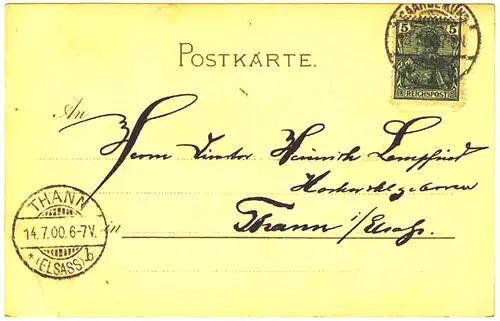 SAARGEMÜND
5 5
REICHSPOST
POSTKARTE.
An
Herrn Director Heinrich Lempfried
Hochwohlgeboren
in Thann i/Elsaß.
THANN
14.7.00.6-7V.
* (ELSASS) b